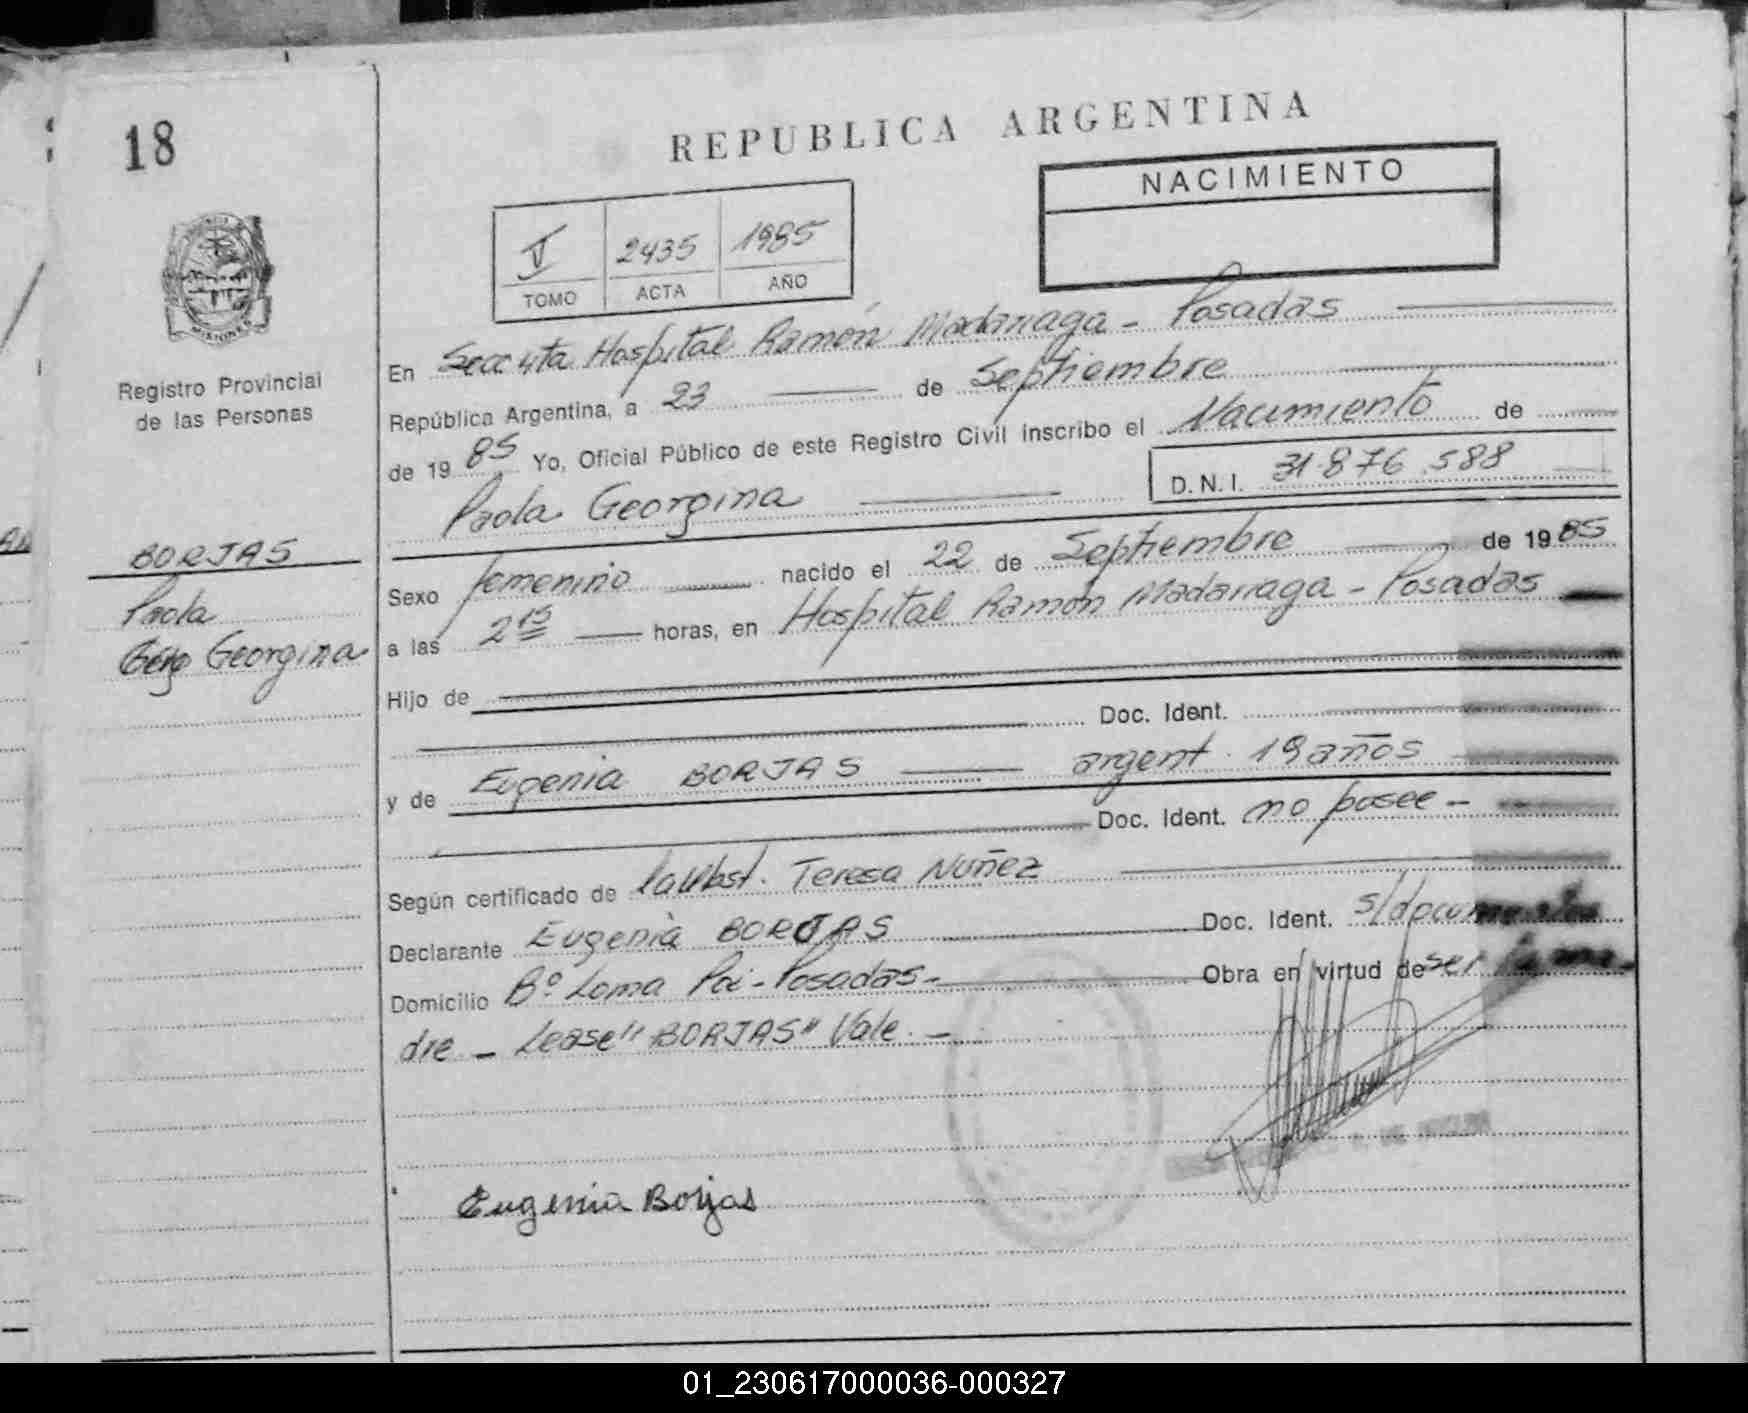 18
REPUBLICA ARGENTINA
NACIMIENTO
V 2435 1985
TOMO ACTA AÑO
MISIONES
Registro Provincial
de las Personas
En Secc 4ta Hospital Ramón Madariaga - Posadas
República Argentina, a 23 de Septiembre
de 1985 Yo, Oficial Público de este Registro Civil inscribo el Nacimiento de
Paola Georgina D.N.I. 31.876.588
BORJAS
Paola
Georgina
Sexo femenino nacido el 22 de Septiembre de 1985
a las 2 15 horas, en Hospital Ramón Madariaga - Posadas
Hijo de
Doc. Ident.
y de Eugenia BORJAS argent. 19 años
Doc. Ident. no posee -
Según certificado de la Obst. Teresa Nuñez
Declarante Eugenia BORJAS Doc. Ident. s/documentos
Domicilio Bº Loma Poi - Posadas - Obra en virtud de ser la ma-
dre - Lease "BORJAS" Vale. -
Eugenia Borjas
01_230617000036-000327